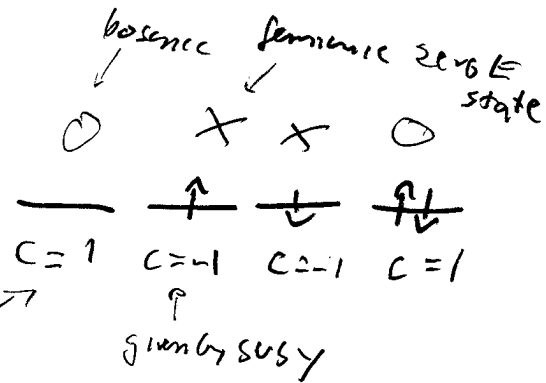 bosonic fermionic zero E
state
C = 1 C = -1 C = -1 C = 1
given by SUSY